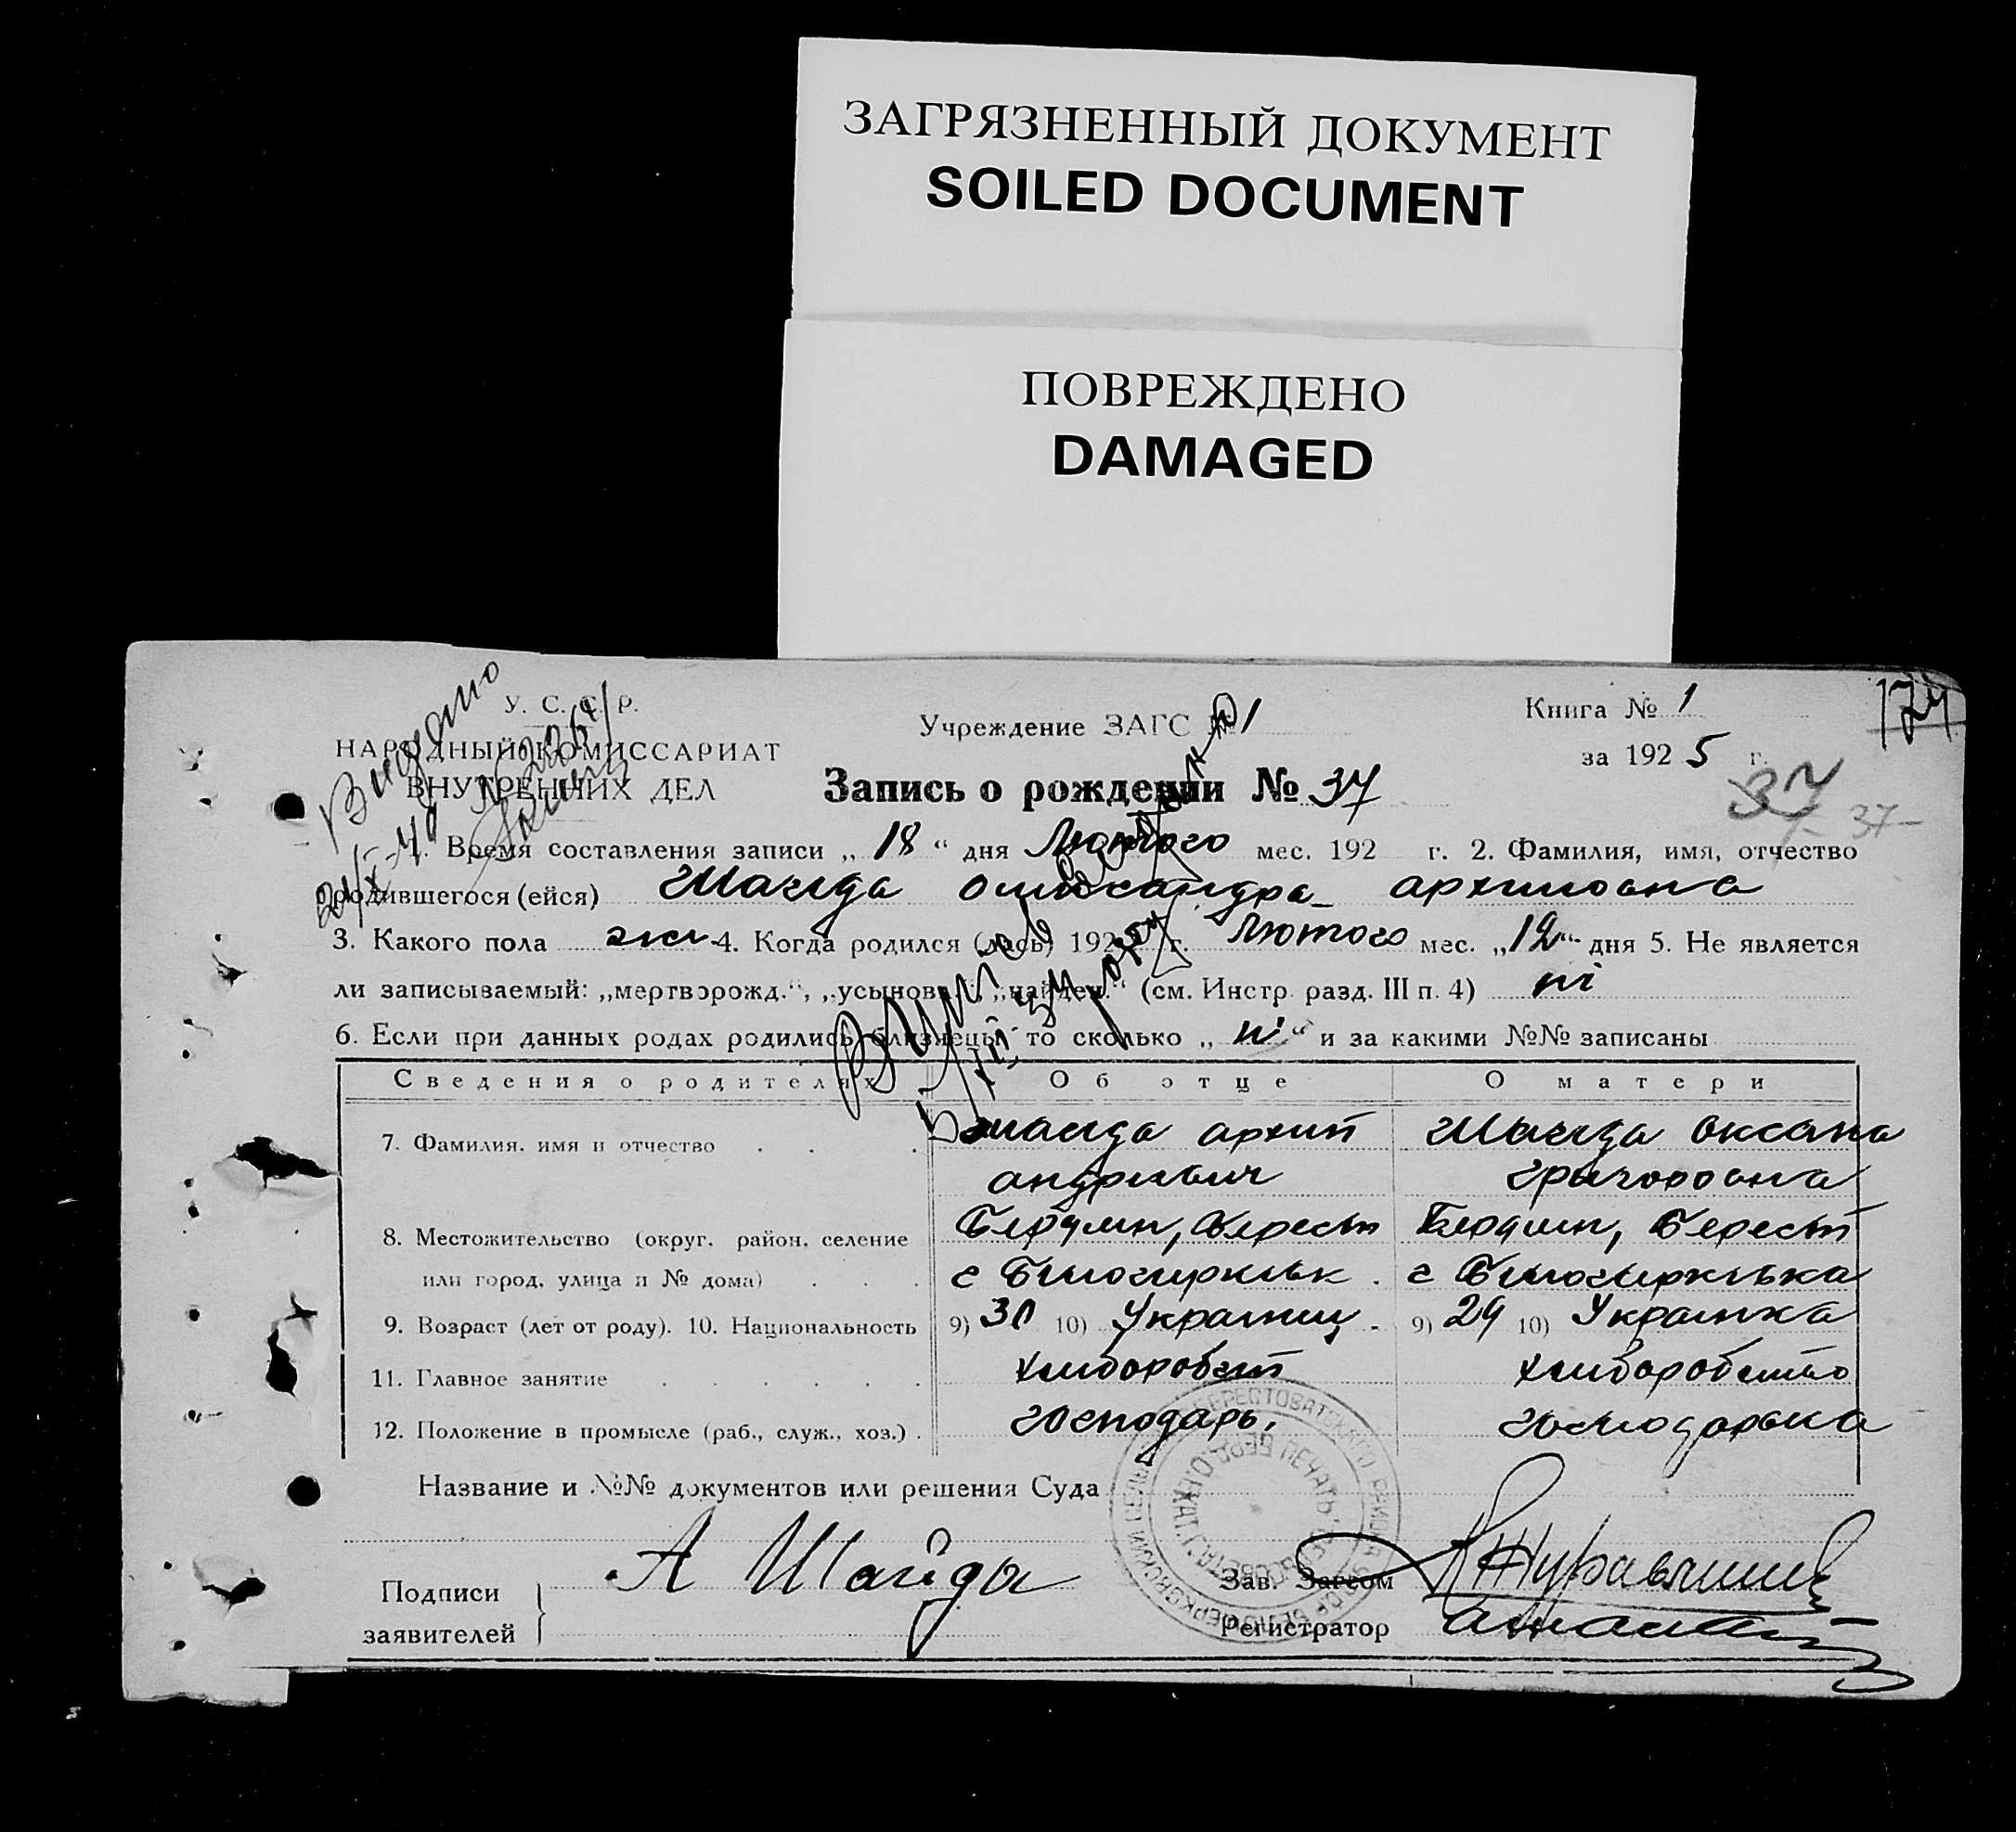 ЗАГРЯЗНЕННЫЙ ДОКУМЕНТ
SOILED DOCUMENT
ПОВРЕЖДЕНО
DAMAGED
У. С. С. Р.
НАРОДНЫЙ КОМИССАРИАТ
ВНУТРЕННИХ ДЕЛ
Видано
Учреждение ЗАГС № 1
Книга № 1
за 1925 г.
174
Запись о рождении № 37
37
- 37 -
1. Время составления записи „ 18 “ дня Лютого мес. 192 г. 2. Фамилия, имя, отчество
родившегося (ейся) Шайда Олександра Архиповна
3. Какого пола жен 4. Когда родился (лась) 192 г. Лютого мес. „12“ дня 5. Не является
ли записываемый: „мертворожд.“, „усыновл.“, „найден.“ (см. Инстр. разд. III п. 4) ні
6. Если при данных родах родились близнецы, то сколько „ ні “ и за какими №№ записаны
Сведения о родителях Об отце О матери
7. Фамилия, имя и отчество Шайда Архип Шайда Оксана
Андриевич Григоровна
8. Местожительство (округ, район, селение Бердян, Берест Бердян, Берест
или город, улица и № дома) с Білоцерківк с Білоцерківка
9. Возраст (лет от роду). 10. Национальность 9) 30 10) Украинц 9) 29 10) Украинка
11. Главное занятие хлибороб хлиборобство
12. Положение в промысле (раб., служ., хоз.) господарь, господарька
Название и №№ документов или решения Суда
Подписи
заявителей
А Шайда
Зав. Загсом
Регистратор